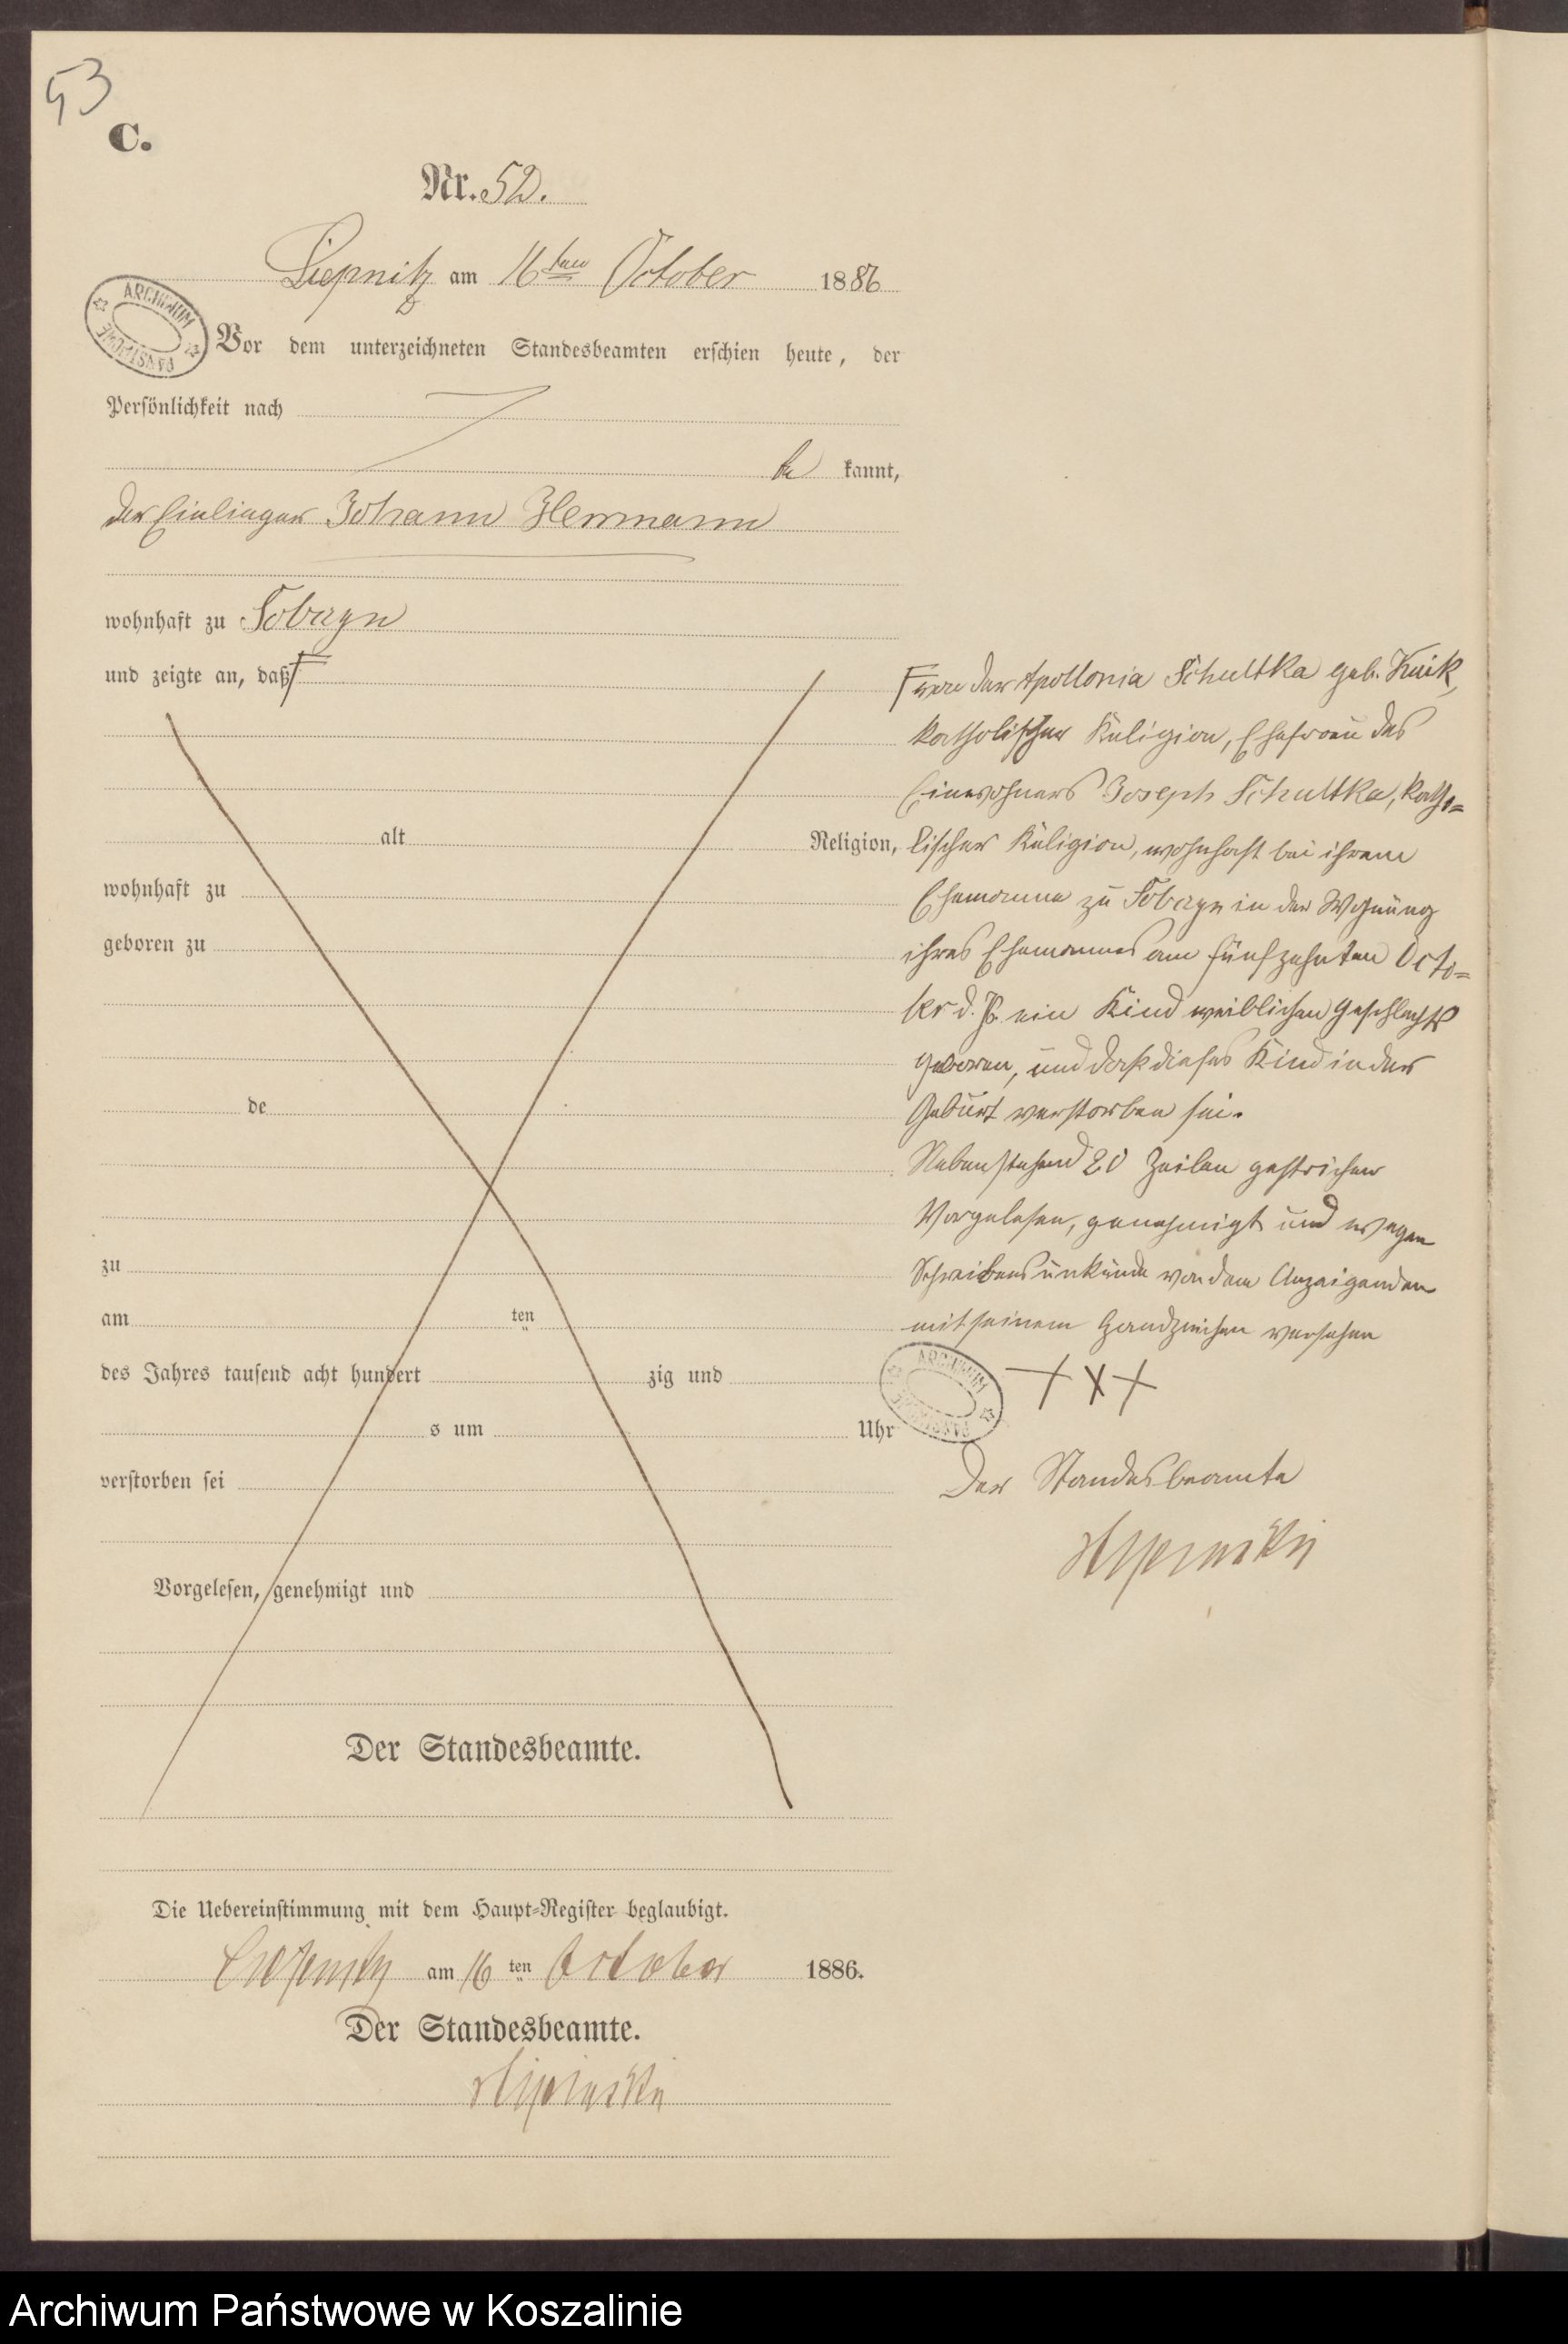 53
C.
Nr. 52.
Liepnitz am 16ten October 1886
Vor dem unterzeichneten Standesbeamten erschien heute, der
Persönlichkeit nach
be kannt,
der Einlieger Johann Hermann
wohnhaft zu Tobagn
und zeigte an, daß
von der Apollonia Schultka geb. Kuik,
katholischer Religion, Ehefrau des
Einwohners Joseph Schultka, katho=
lischer Religion, wohnhaft bei ihrem
Ehemanne zu in der Wohnung
ihres Ehemannes am fünfzehnten Octo=
ber d. Js. ein Kind weiblichen Geschlechts
geboren, und daß dieses Kind in der
Geburt verstorben sei.
Nebenstehend 20 Zeilen gestrichen
Vorgelesen, genehmigt und wegen
Schreibensunkunde von dem Anzeigenden
mit seinem Handzeichen versehen
+ x +
Der Standesbeamte
alt Religion,
wohnhaft zu
geboren zu
de
zu
am ten
des Jahres tausend acht hundert zig und
s um Uhr
verstorben sei
Vorgelesen, genehmigt und
Der Standesbeamte.
Die Uebereinstimmung mit dem Haupt=Register beglaubigt.
am 16 ten October 1886.
Der Standesbeamte.
ARCHIWUM PAŃSTWOWE
ARCHIWUM PAŃSTWOWE
Archiwum Państwowe w Koszalinie